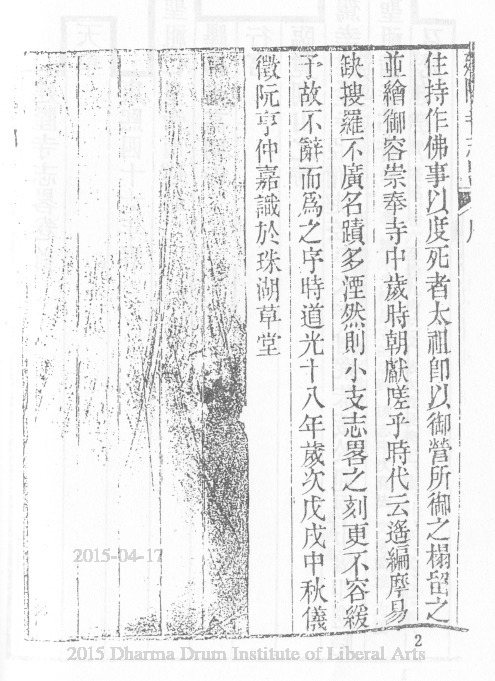 住持作佛事以度死者太祖卽以御營所御之榻留之
並繪御容崇奉寺中歲時朝獻嗟乎時代云遙編摩易
缺搜羅不廣名蹟多湮然則小支志畧之刻更不容緩
予故不辭而爲之序時道光十八年歲次戊戌中秋儀
徵阮亨仲嘉識於珠湖草堂
2015-04-17
2
2015 Dharma Drum Institute of Liberal Arts